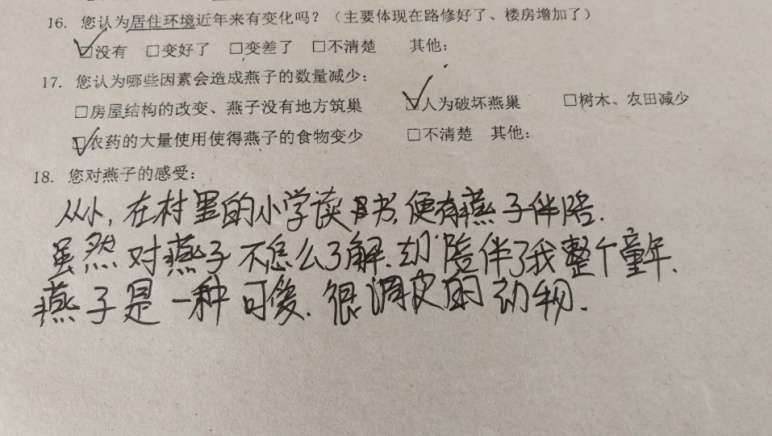 16. 您认为居住环境近年来有变化吗？（主要体现在路修好了、楼房增加了）
☑没有 □变好了 □变差了 □不清楚 其他：
17. 您认为哪些因素会造成燕子的数量减少：
□房屋结构的改变、燕子没有地方筑巢 ☑人为破坏燕巢 □树木、农田减少
☑农药的大量使用使得燕子的食物变少 □不清楚 其他：
18. 您对燕子的感受：
从小，在村里的小学读书，便有燕子伴陪．
虽然对燕子不怎么了解．却陪伴了我整个童年．
燕子是一种可爱．很调皮的动物．